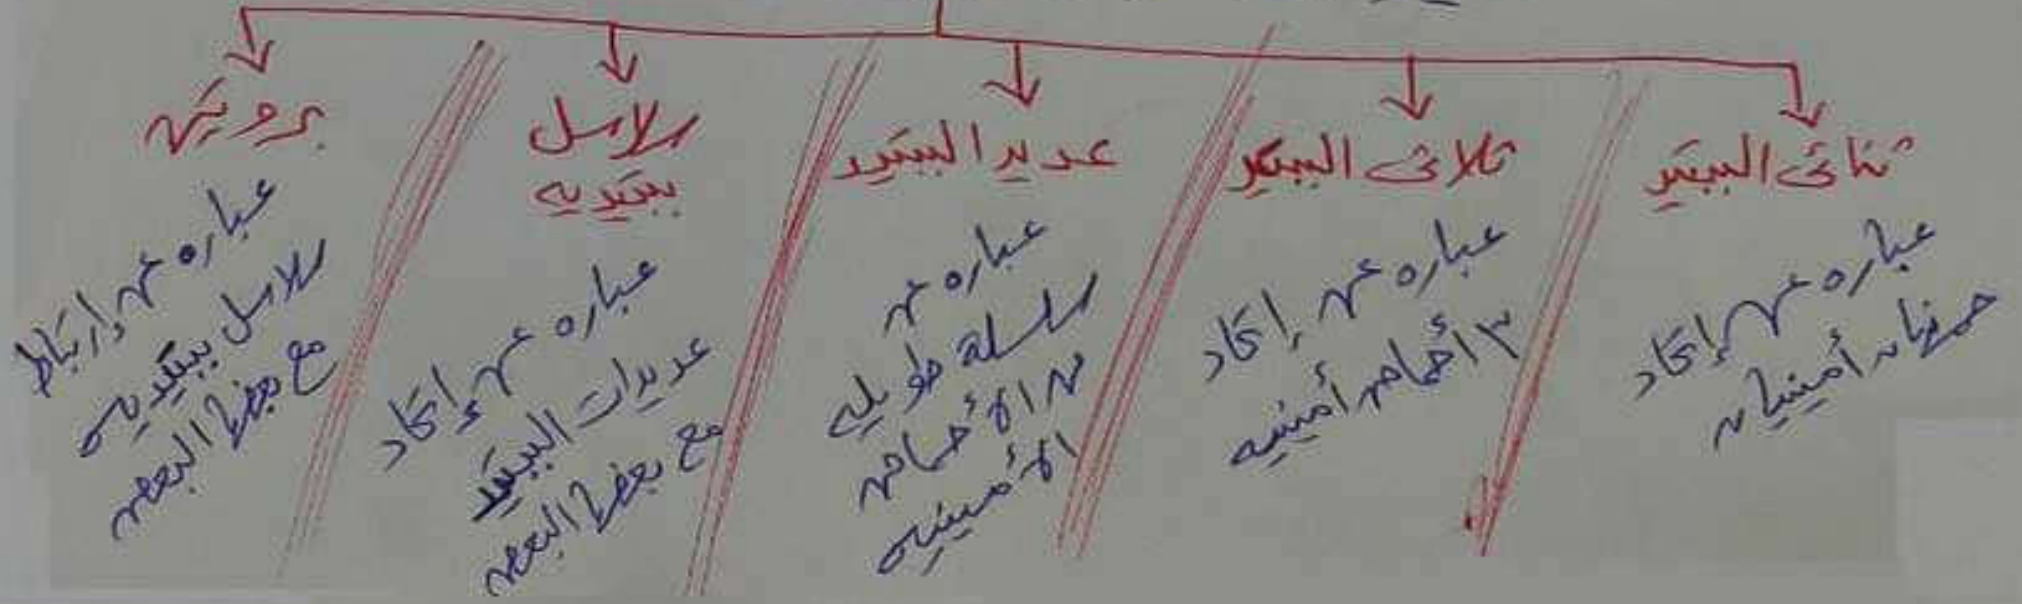 ثنائى الببتيد
عباره عن إتحاد
حمضان أمينيان
ثلاثى الببتيد
عباره عن إتحاد
٣ أحماض أمينيه
عديد الببتيد
عباره عن
سلسلة طويله
من الأحماض
الأمينيه
سلاسل
ببتيديه
عباره عن إتحاد
عديدات الببتيد
مع بعضها البعض
بروتين
عباره عن إرتباط
سلاسل ببتيديه
مع بعضها البعض